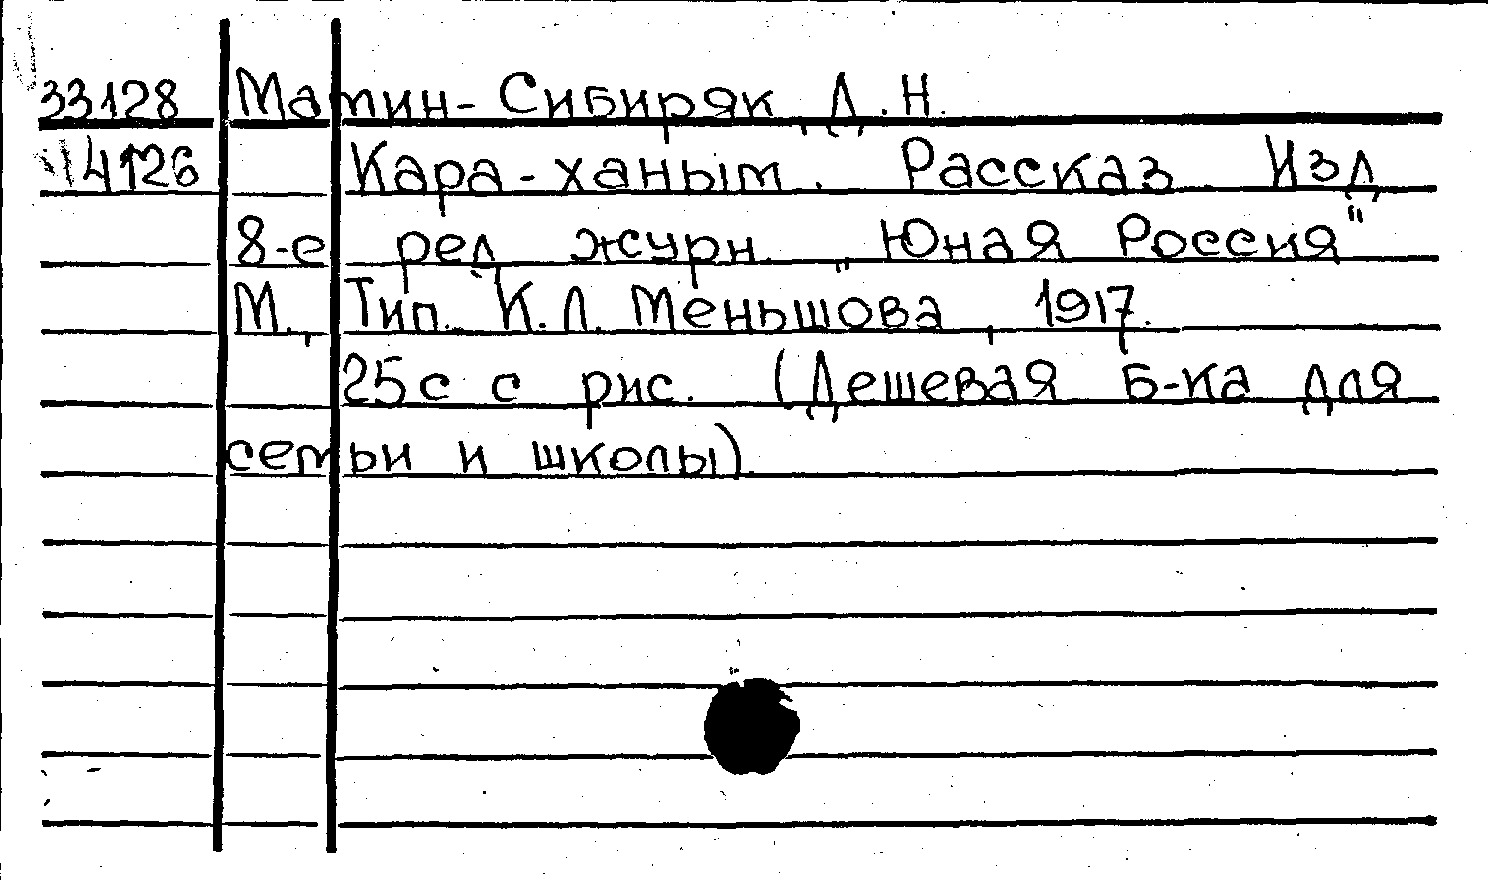 33128 Мамин-Сибиряк, Д.Н.
4126 Кара-ханым. Рассказ. Изд.
8-е ред. журн. „Юная Россия"
М., Тип. К.Л. Меньшова, 1917.
25 с с рис. (Дешевая б-ка для
семьи и школы).